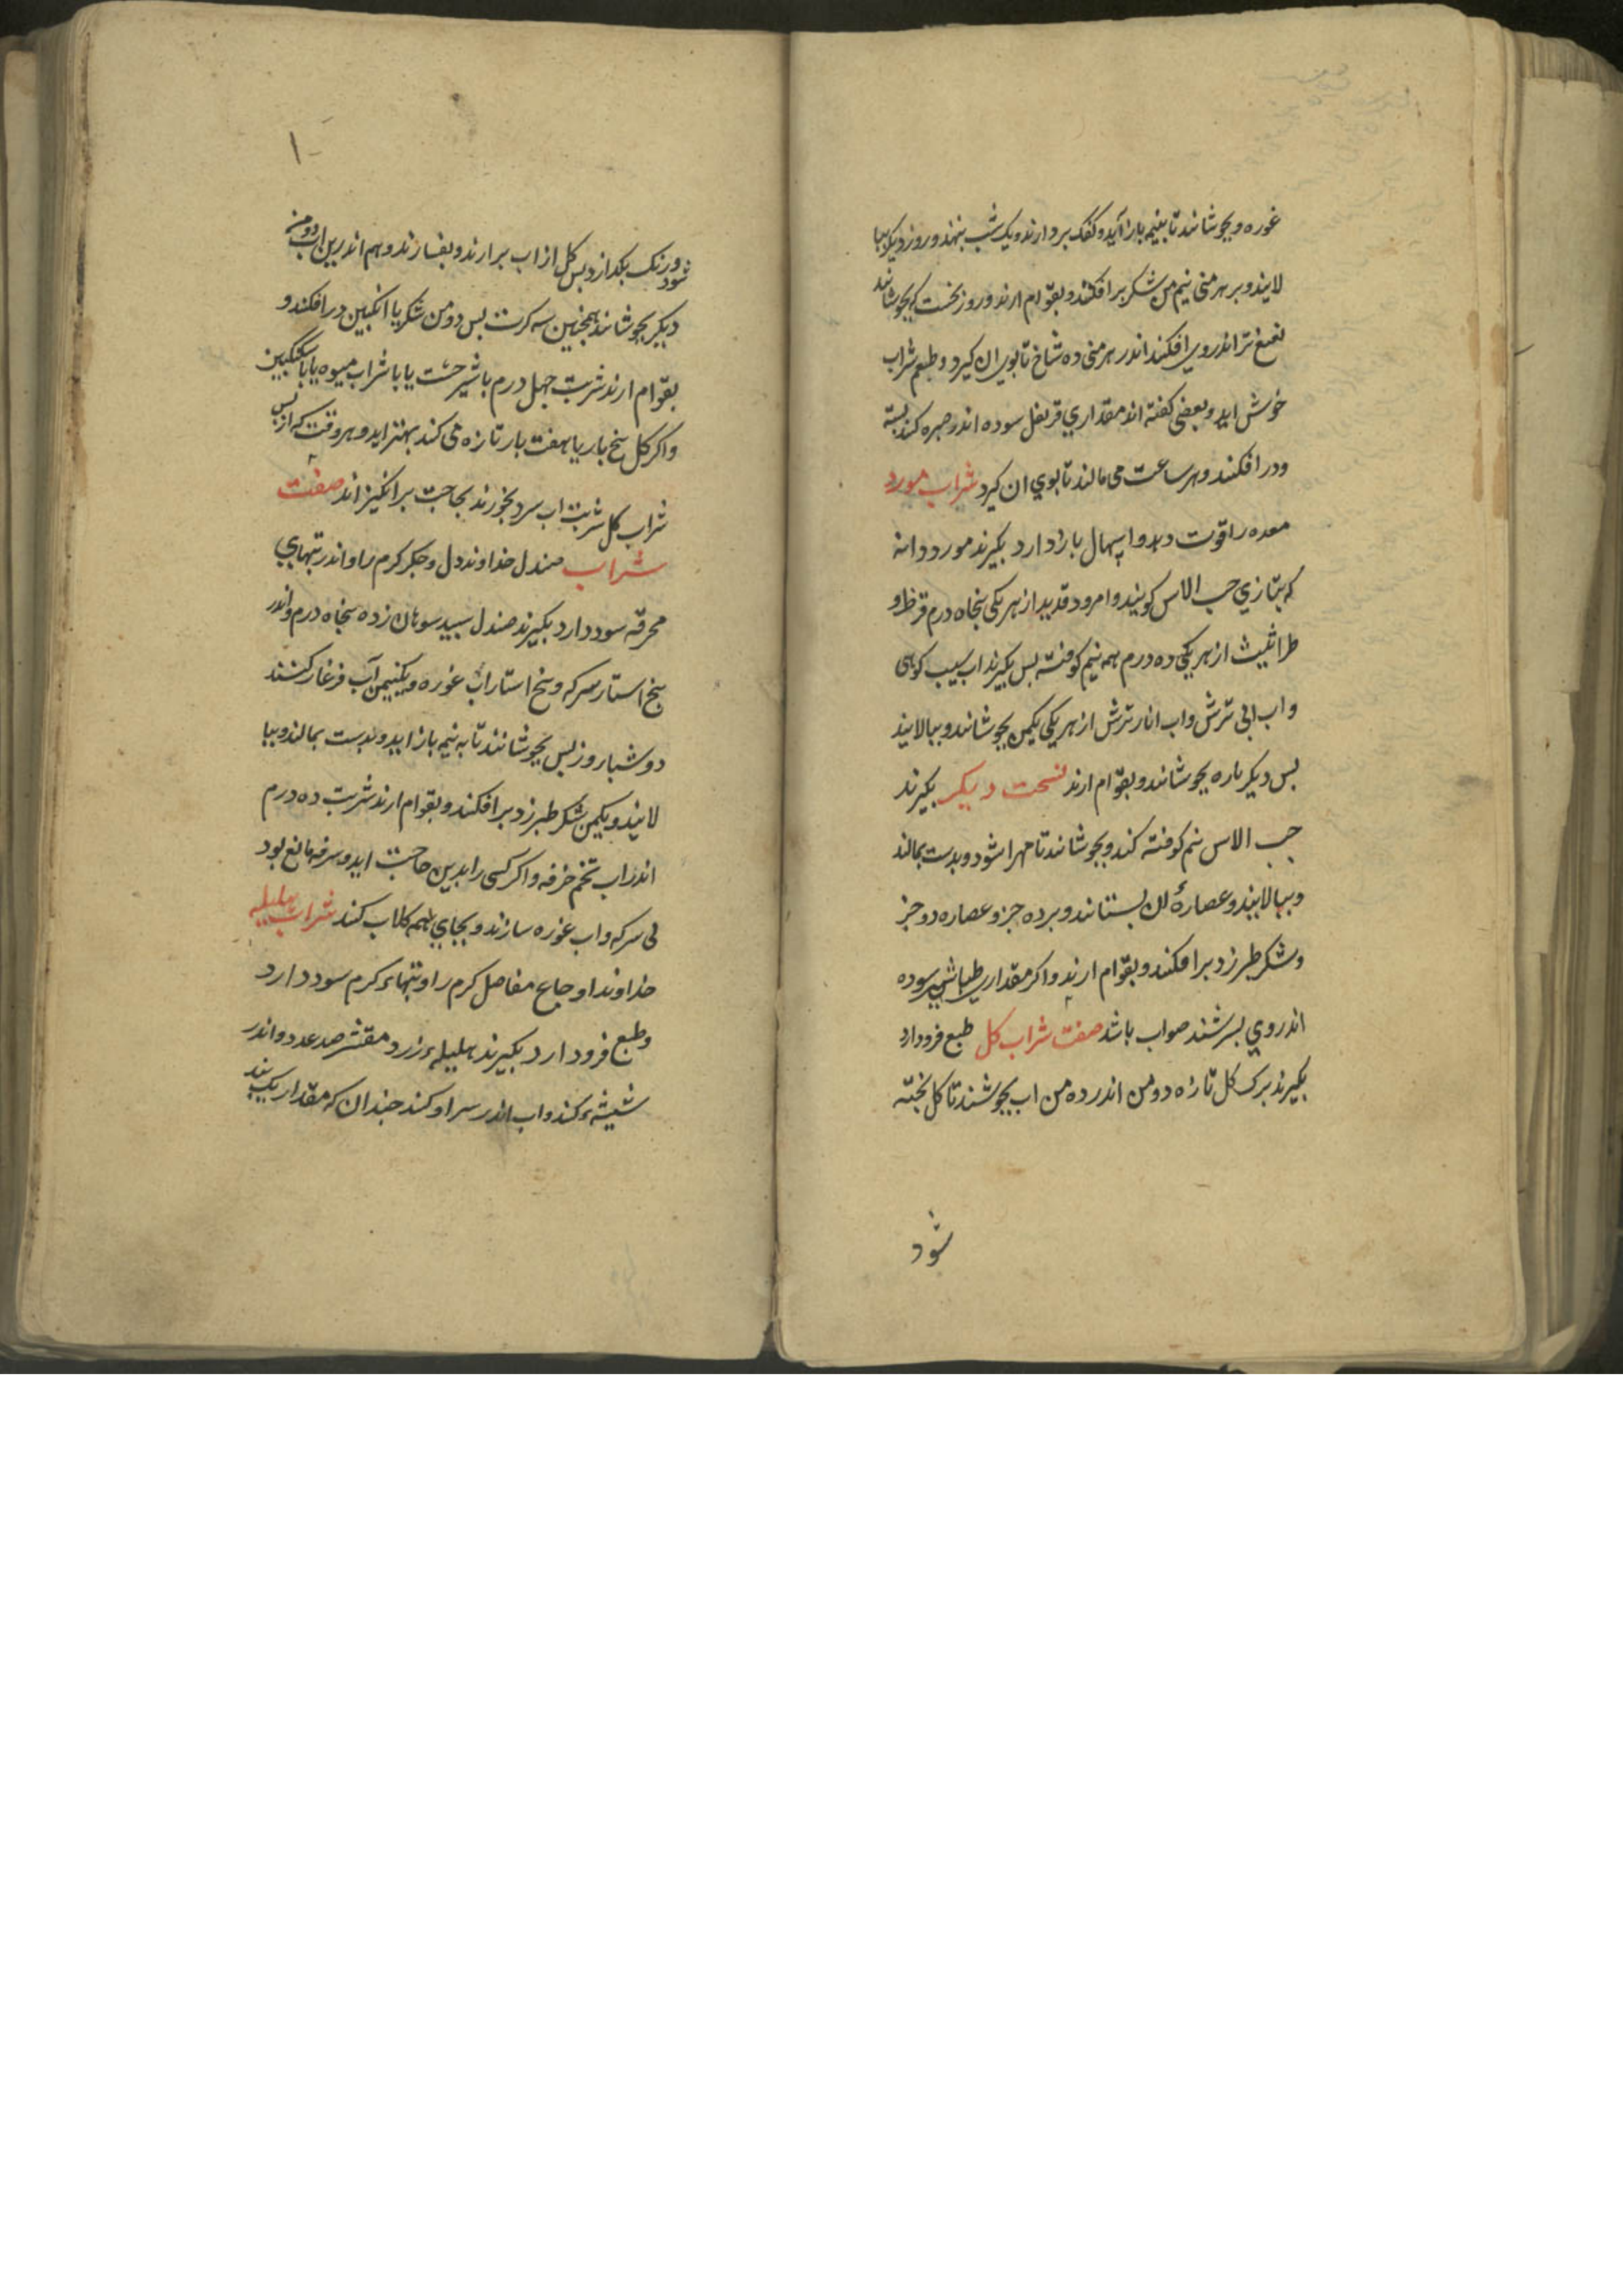 غوره و بجوشانند تا بنیم باز آید و کفک بردارند و یک شب بنهند و روز دیکر ببا
لایند و بر هر منی نیم من شکر برافکنند و بقوام ارند و روز نخست که بجوشانند
نعنع تر اندر وی افکنند اندر هر منی ده شاخ تا بوی ان کیرد و طبعم شراب
خوش اید و بعضی کفته اند مقداری قرنفل سوده اندر صره کنند بسته
ودر افکنند و هر ساعت می مالند تا بوی ان کیرد شراب مورد
معده را قوت دهد و اسهال باز دارد بکیرند مورد دانه
که بتازی حب الاس کویند و امرود قدید از هر یکی پنجاه درم قرظ و
طراثیث از هر یکی ده درم همه نیم کوفته بس بکیرند اب سیب کوهی
و اب ابی ترش و اب انار ترش از هر یکی یکمن بجوشانند و ببالایند
بس دیکر باره بجوشانند و بقوام ارند نسخت دیکر بکیرند
حب الاس نیم کوفته کنند و بجوشانند تا مهرا شود و بدست بمالند
و ببالایند و عصارهٔ لک بستانند و بر ده جزو عصاره دو جز
و شکر طبرزد برافکنند و بقوام ارند و اکر مقداری طباشیر سوده
اندر وی بسرشند صواب باشد صفت شراب کل طبع فرود ارد
بکیرند برک کل تازه دو من اندر ده من اب بجوشند تا کل پخته
شود
۱۰
شود و رنک بکدازد بس کل از اب برارند و بفشارند و هم اندرین اب دو من
دیکر بجوشانند همچنین سه کرت بس دو من شکر یا انکبین درافکنند و
بقوام ارند شربت چهل درم با شیرخشت یا با شراب میوه یا با سکنکبین
و اکر کل پنج بار یا هفت بار تازه می کند بهتر اید و هر وقت که از پس
شراب کل شربت اب سرد بخورند بجاجت برانکیزاند صفت
شراب صندل خداوند دل و جکر کرم را و اندر تبهای
محرقه سود دارد بکیرند صندل سپید سوهان زده پنجاه درم و اندر
پنج استار سرکه و پنج استار اب غوره و یکنیمن آب فرغار کنند
دو شباروز بس بجوشانند تا به نیم باز اید و بدست بمالند و ببا
لایند و یکمن شکر طبرزد برافکنند و بقوام ارند شربت ده درم
اندر اب تخم خرفه و اکر کسی را بدین حاجت اید و سرفه مانع بود
بی سرکه و اب غوره سازند و بجای همه کلاب کند شراب هلیله
خداوند اوجاع مفاصل کرم را و تبهاء کرم سود دارد
و طبع فرود ارد بکیرند هلیلهء زرد مقشر صد عدد و اندر
شیشهء کنند و اب اندر سر او کنند چندان که مقدار یک بند